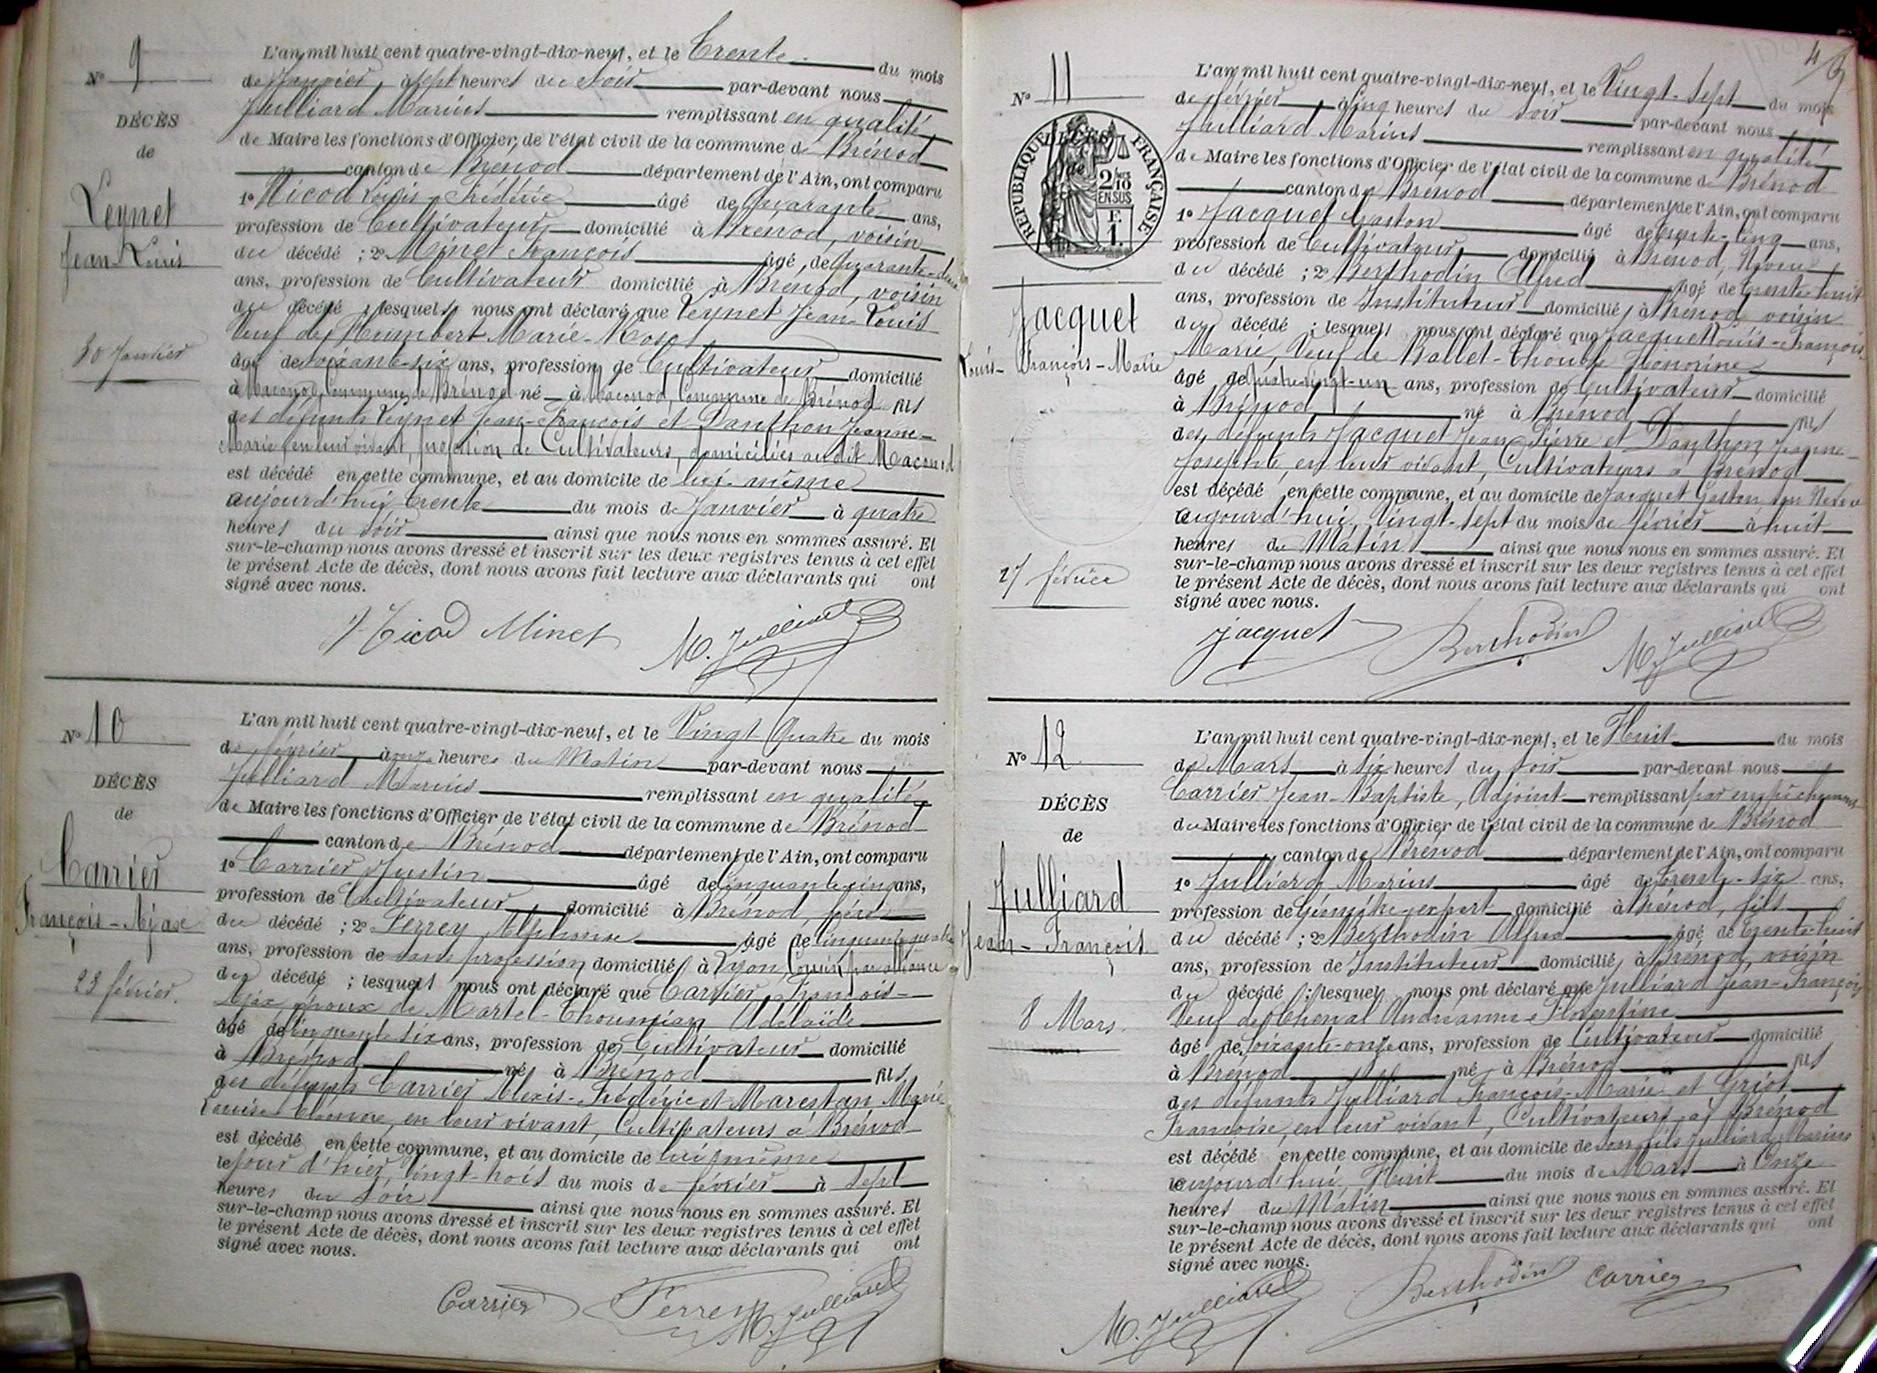 N° 9
DÉCÈS
de
Leynet
Jean-Louis
30 Janvier
L'an mil huit cent quatre-vingt-dix-neuf, et le Trente du mois
de Janvier à sept heures du soir par-devant nous
Julliard Marius remplissant en qualité
de Maire les fonctions d'Officier de l'état civil de la commune de Brénod
canton de Brénod département de l'Ain, ont comparu
1° Nicod Louis-Frédéric âgé de quarante ans,
profession de Cultivateur domicilié à Brénod, voisin
du décédé ; 2° Minet François âgé de quarante-deux
ans, profession de Cultivateur domicilié à Brénod, voisin
du décédé ; lesquels nous ont déclaré que Leynet Jean-Louis
Veuf de Humbert Marie-
âgé de soixante-six ans, profession de Cultivateur domicilié
à Maconod, Commune de Brénod né à Maconod, Commune de Brénod fils
des défunts Leynet Jean-François et Danthon Jeanne-
Marie, en leur vivant, profession de Cultivateurs, domiciliés audit Maconod
est décédé en cette commune, et au domicile de lui-même
aujourd'hui trente du mois de Janvier à quatre
heures du soir ainsi que nous nous en sommes assuré. Et
sur-le-champ nous avons dressé et inscrit sur les deux registres tenus à cet effet
le présent Acte de décès, dont nous avons fait lecture aux déclarants qui ont
signé avec nous.
Nicod Minet M. Julliard
N° 10
DÉCÈS
de
Carrier
François-Ajax
23 février.
L'an mil huit cent quatre-vingt-dix-neuf, et le Vingt Quatre du mois
de février à onze heures du Matin par-devant nous
Julliard Marius remplissant en qualité
de Maire les fonctions d'Officier de l'état civil de la commune de Brénod
canton de Brénod département de l'Ain, ont comparu
1° Carrier Justin âgé de cinquante-cinq ans,
profession de Cultivateur domicilié à Brénod, frère
du décédé ; 2° Ferrey Alphonse âgé de cinquante-quatre
ans, profession de sans profession domicilié à Lyon, Cousin par alliance
du décédé ; lesquels nous ont déclaré que Carrier François-
Ajax époux de Martel- Adelaïde
âgé de cinquante-six ans, profession de Cultivateur domicilié
à Brénod né à Brénod fils
des défunts Carrier Alexis-Frédéric et Marestan Marie
Louise en leur vivant, Cultivateurs à Brénod
est décédé en cette commune, et au domicile de lui-même
le jour d'hier vingt-trois du mois de février à sept
heures du soir ainsi que nous nous en sommes assuré. Et
sur-le-champ nous avons dressé et inscrit sur les deux registres tenus à cet effet
le présent Acte de décès, dont nous avons fait lecture aux déclarants qui ont
signé avec nous.
Carrier Ferrey M. Julliard
4
N° 11
DÉCÈS
RÉPUBLIQUE FRANÇAISE
2/10 EN SUS
F. 1.
Jacquet
Louis-François-Marie
27 février
L'an mil huit cent quatre-vingt-dix-neuf, et le Vingt-Sept du mois
de février à cinq heures du soir par-devant nous
Julliard Marius remplissant en qualité
de Maire les fonctions d'Officier de l'état civil de la commune de Brénod
canton de Brénod département de l'Ain, ont comparu
1° Jacquet Gaston âgé de trente-cinq ans,
profession de Cultivateur domicilié à Brénod, Neveu
du décédé ; 2° Berthodin Alfred âgé de trente-huit
ans, profession de Instituteur domicilié à Brénod voisin
du décédé ; lesquels nous ont déclaré que Jacquet Louis-François
Marie, Veuf de Ballet- Honorine
âgé de quatre-vingt-un ans, profession de Cultivateur domicilié
à Brénod né à Brénod fils
des défunts Jacquet Jean-Pierre et Danthon Jeanne-
Josephte, en leur vivant, Cultivateurs à Brénod
est décédé en cette commune, et au domicile de Jacquet Gaston son Neveu
aujourd'hui, Vingt-sept du mois de février à huit
heures du Matin ainsi que nous nous en sommes assuré. Et
sur-le-champ nous avons dressé et inscrit sur les deux registres tenus à cet effet
le présent Acte de décès, dont nous avons fait lecture aux déclarants qui ont
signé avec nous.
jacquet Berthodin M. Julliard
N° 12
DÉCÈS
de
Julliard
Jean-François
8 Mars.
L'an mil huit cent quatre-vingt-dix-neuf, et le Huit du mois
de Mars à six heures du soir par-devant nous
Carrier Jean-Baptiste, Adjoint remplissant par empêchement
du Maire les fonctions d'Officier de l'état civil de la commune de Brénod
canton de Brénod département de l'Ain, ont comparu
1° Julliard Marius âgé de trente-six ans,
profession de Géomètre-expert domicilié à Brénod, fils
du décédé ; 2° Berthodin Alfred âgé de trente-huit
ans, profession de Instituteur domicilié à Brénod, voisin
du décédé ; lesquels nous ont déclaré que Julliard Jean-François
Veuf de Chenal Andréanne-Florentine
âgé de soixante-onze ans, profession de Cultivateur domicilié
à Brénod né à Brénod fils
des défunts Julliard François-Marie et Griot
Françoise, en leur vivant, Cultivateurs à Brénod
est décédé en cette commune, et au domicile de son fils Julliard Marius
aujourd'hui, Huit du mois de Mars à Onze
heures du Matin ainsi que nous nous en sommes assuré. Et
sur-le-champ nous avons dressé et inscrit sur les deux registres tenus à cet effet
le présent Acte de décès, dont nous avons fait lecture aux déclarants qui ont
signé avec nous.
M. Julliard Berthodin Carrier